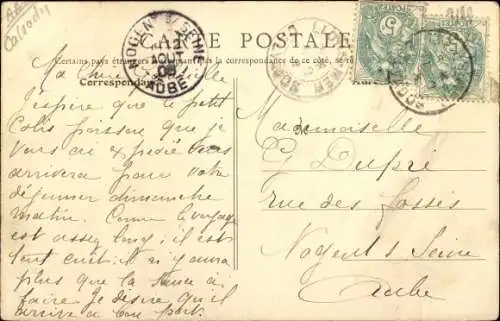 Calvados
CARTE POSTALE
Certains pays étrangers la correspondance de ce côté.
NOGENT S/ SEINE
AUBE
Correspondance
Ma chère
J'espère que le petit
Colis poisson que je
vous ai expédié vous
arrivera pour votre
déjeuner dimanche
matin. Comme le voyage
est assez long; il est
tout cuit. Il n'y aura
plus que la sauce à
faire. Je désire qu'il
arrive à bon port.
Mademoiselle
G Dupré
rue des Fossés
Nogent s/ Seine
Aube